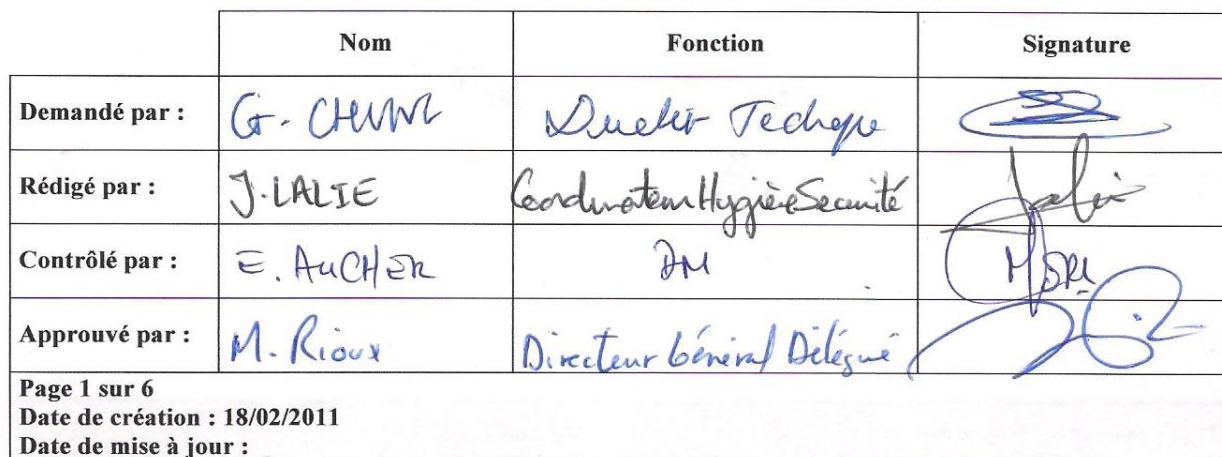 Nom Fonction Signature
Demandé par : G. Directeur Technique
Rédigé par : J. LALIE Coordinateur Hygiène Sécurité
Contrôlé par : E. AUCHER
Approuvé par : M. Rioux Directeur Général Délégué
Page 1 sur 6
Date de création : 18/02/2011
Date de mise à jour :